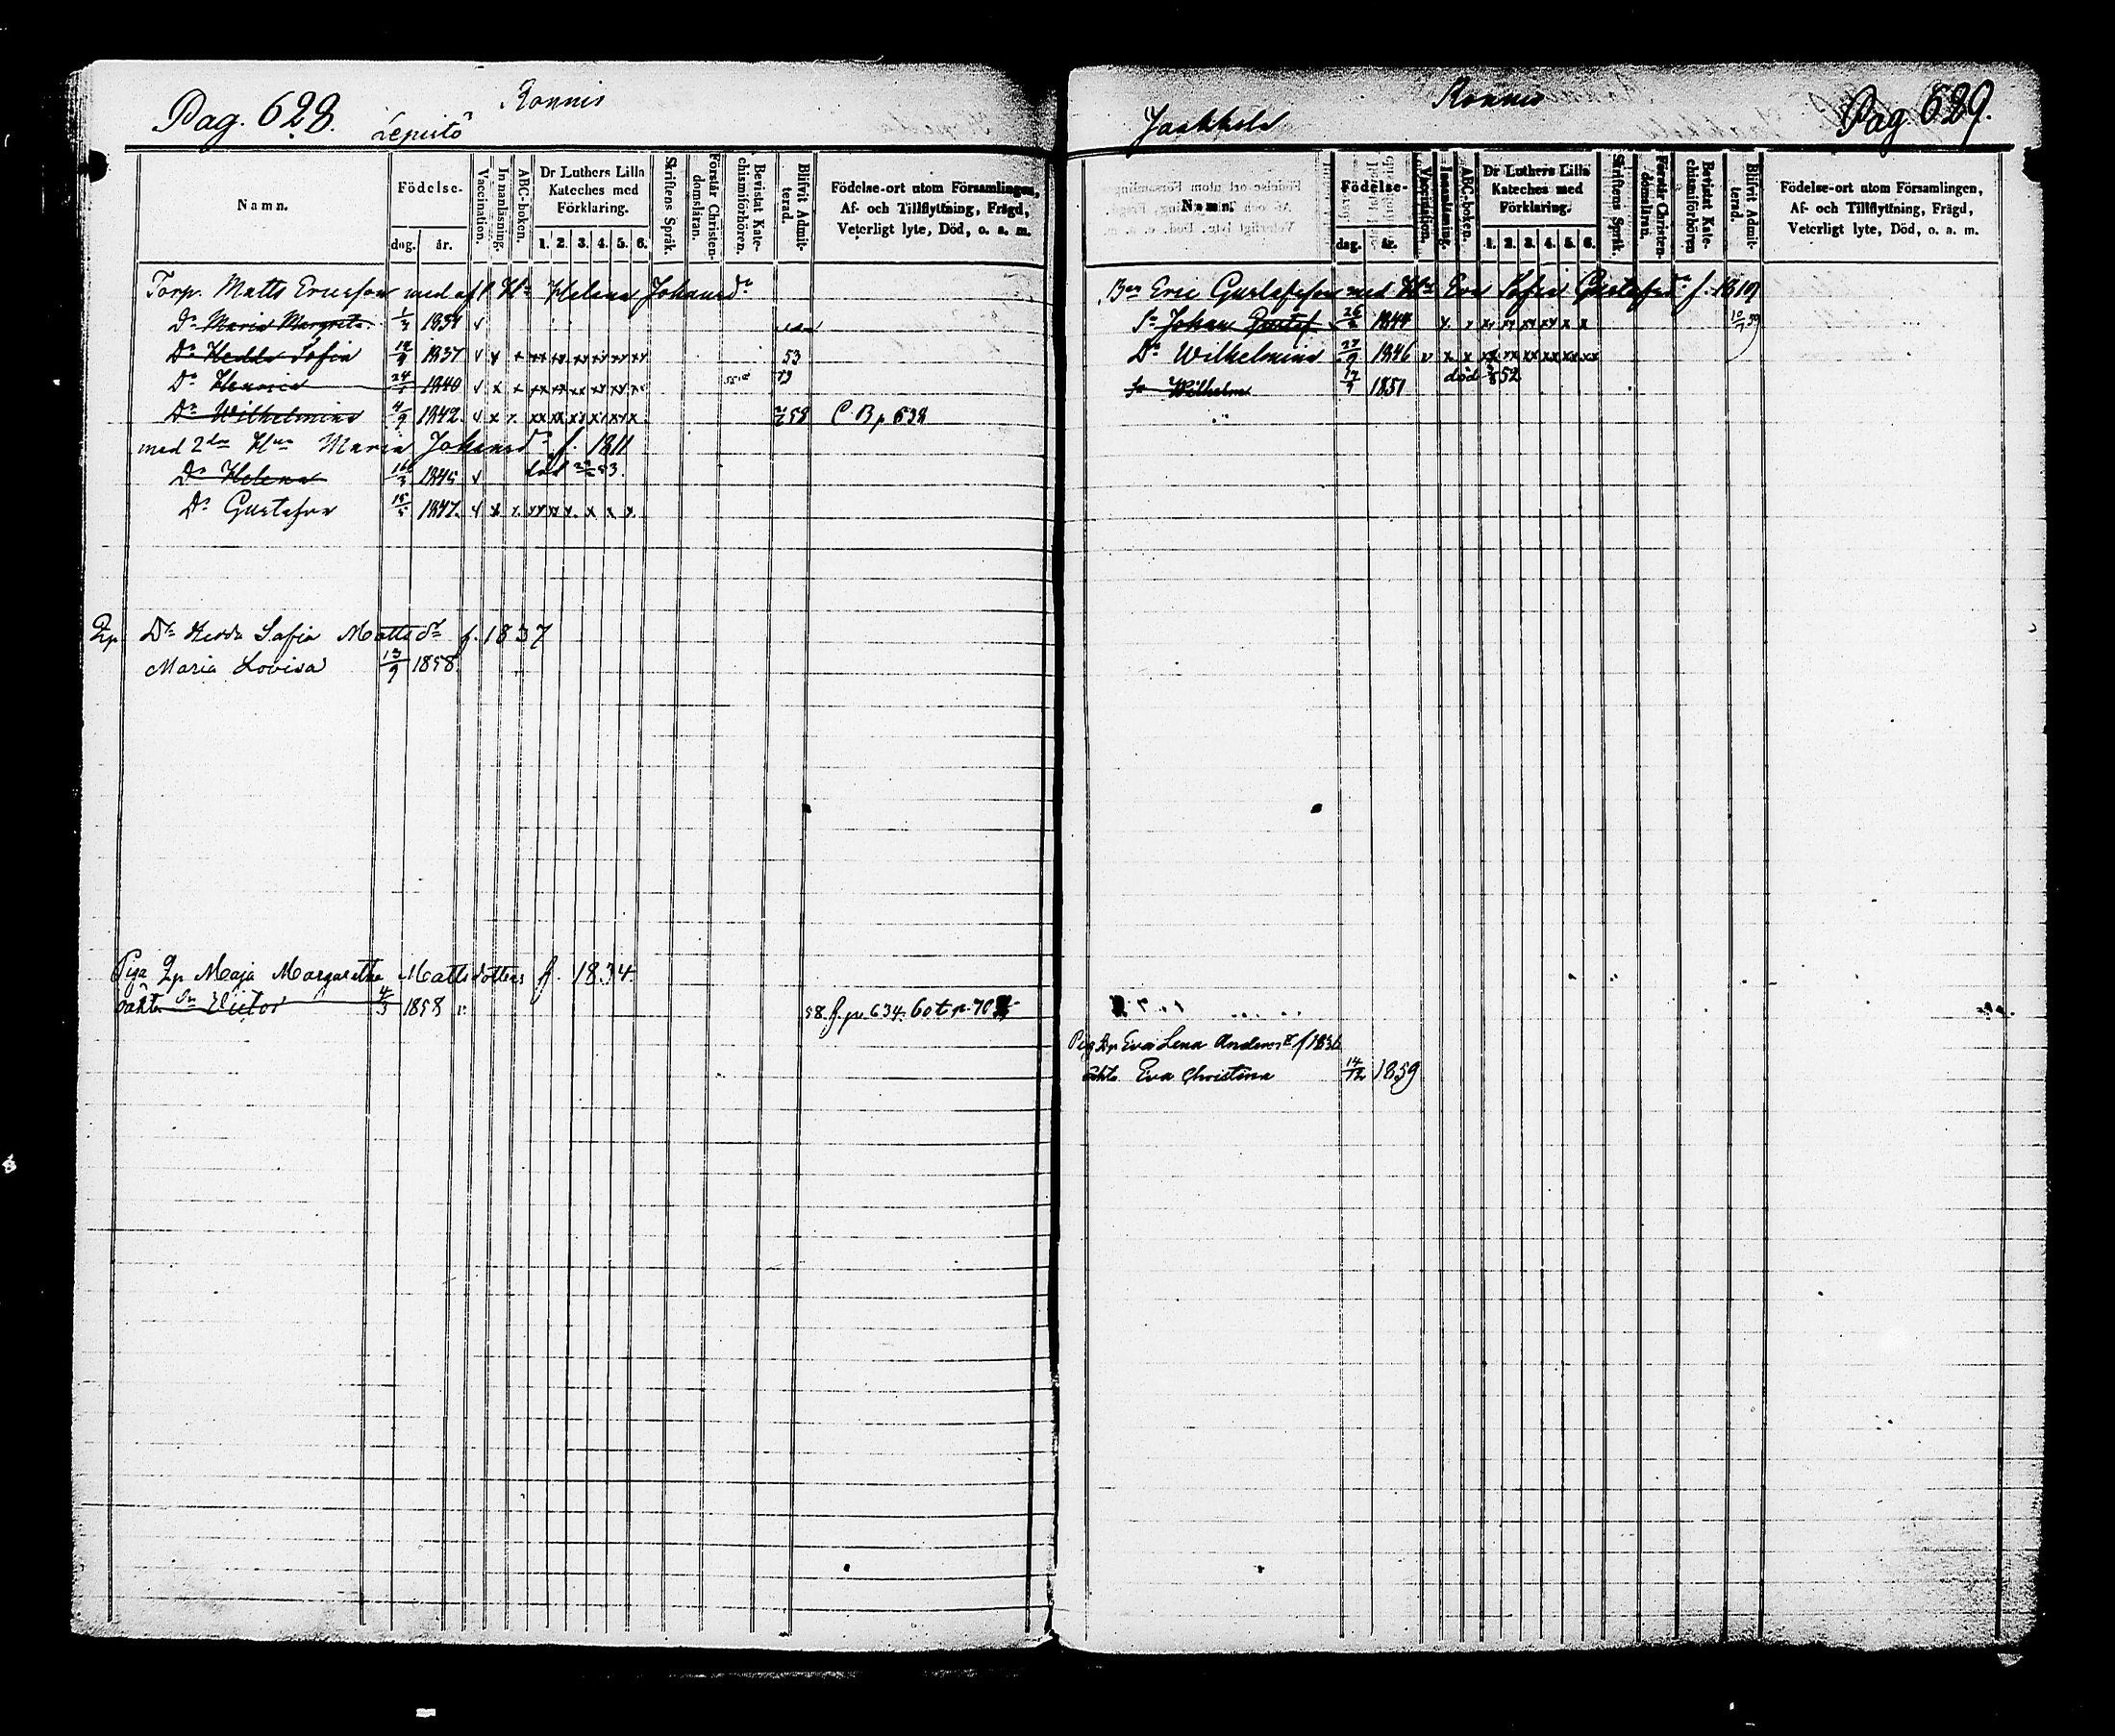 Pag. 628. Lepistö Ronnis
Namn. Födelse- dag. år. Vaccination. Innanläsning. ABC-boken. Dr Luthers Lilla Kateches med Förklaring. 1. 2. 3. 4. 5. 6. Skriftens Språk. Förstår Christendomsläran. Bevistat Katechismiförhören. Blifvit Admitterad. Födelse-ort utom Församlingen, Af- och Tillflyttning, Frägd, Veterligt lyte, Död, o. a. m.
Torp. Matts Ericsson med afl. Hu Helena Johansdr
Dr Maria Margreta 1834 v
Dr Hedda Sofia 1837 v x x xx xx xx xx xx xx 53
Dr Henrica 1840 v x x xx xx xx xx xx x
Dr Wilhelmina 4/9 1842 v x x xx xx xx xx xx x 58 C. B. p 638
med 2dra Hu Maria Johansdr f. 1811
Dr Helena 16/3 1845 v död 53.
Dr Gustafva 15/5 1847 v x x xx xx x x x x
Qp. Dr Hedda Sofia Mattsdr f. 1837
Maria Lovisa 13/9 1858
Piga Qp Maja Margaretha Mattsdotter f. 1834.
oäkta Sn Victor 4/3 1858 v 58. fr. p. 634. 60 t p. 70
Pag. 629. Jaakkola Ronnis
Namn. Födelse- dag. år. Vaccination. Innanläsning. ABC-boken. Dr Luthers Lilla Kateches med Förklaring. 1. 2. 3. 4. 5. 6. Skriftens Språk. Förstår Christendomsläran. Bevistat Katechismiförhören Blifvit Admitterad. Födelse-ort utom Församlingen, Af- och Tillflyttning, Frägd, Veterligt lyte, Död, o. a. m.
Bon Eric Gustafsson med Hu Eva Sofia Gustafsdr f. 1819
Sn Johan Gustaf 1844 x x xx xx xx xx x x 59
Dr Wilhelmina 27/9 1846 v x x xx xx xx xx xx xx
Sn Wilhelm 1851 död 52
Pig Qp Eva Lena Andersdr f 1836
oäkta Eva Christina 14/12 1859